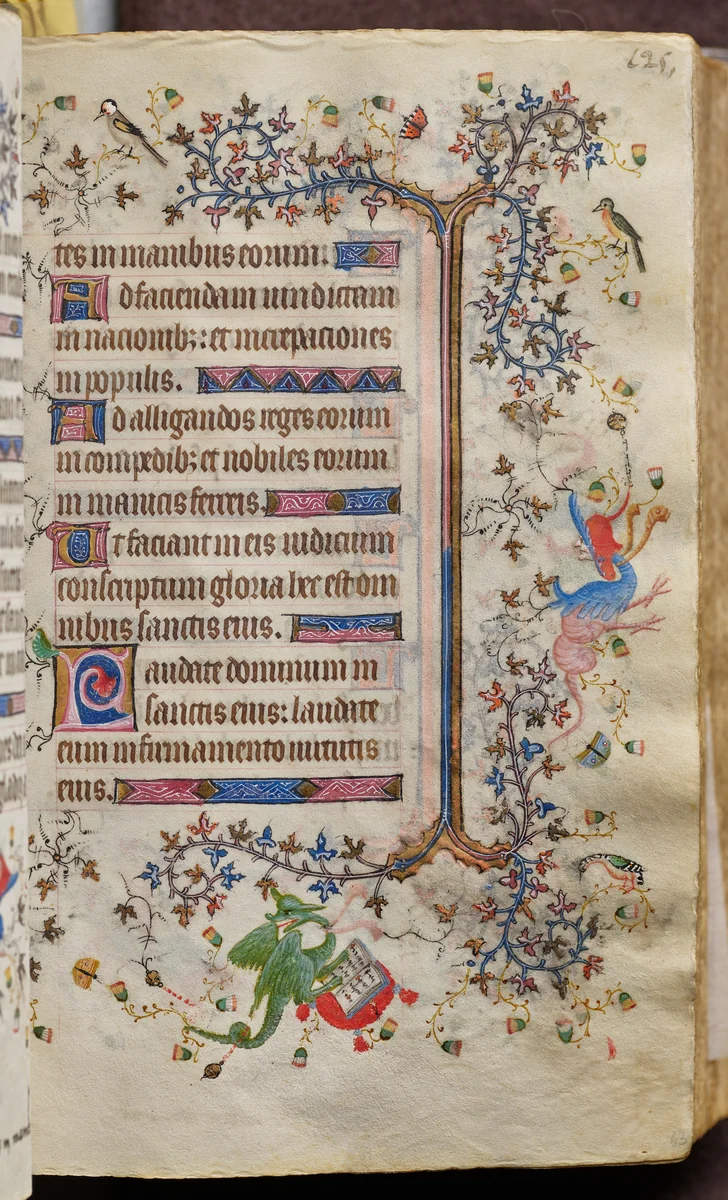 625,
tes in manibus eorum.
Ad faciendam uindictam
in nacionibz: et increpaciones
in populis.
Ad alligandos reges eorum
in compedibz et nobiles eorum
in manicis ferreis.
Ut faciant in eis iudicium
conscriptum gloria hec est om
nibus sanctis eius.
Laudate dominum in
sanctis eius: laudate
eum in firmamento uirtutis
eius.